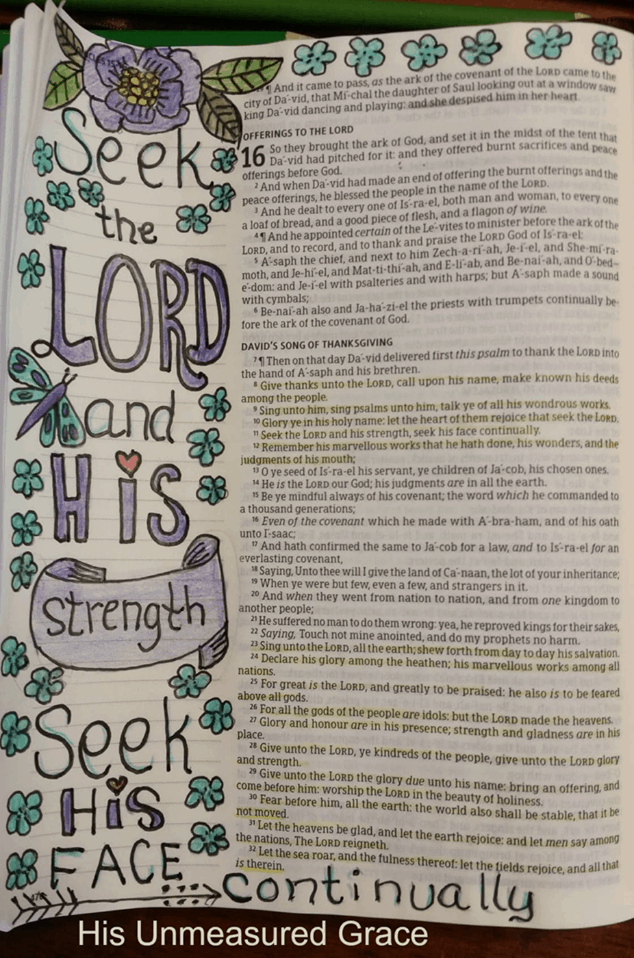 Seek
the
LORD
and
HiS
strength
Seek
HiS
FACE
continually
¶ And it came to pass, as the ark of the covenant of the LORD came to the
city of Da´-vid, that Mi´-chal the daughter of Saul looking out at a window saw
king Da´-vid dancing and playing: and she despised him in her heart.
OFFERINGS TO THE LORD
16 So they brought the ark of God, and set it in the midst of the tent that
Da´-vid had pitched for it: and they offered burnt sacrifices and peace
offerings before God.
2 And when Da´-vid had made an end of offering the burnt offerings and the
peace offerings, he blessed the people in the name of the LORD.
3 And he dealt to every one of Is´-ra-el, both man and woman, to every one
a loaf of bread, and a good piece of flesh, and a flagon of wine.
4 ¶ And he appointed certain of the Le´-vites to minister before the ark of the
LORD, and to record, and to thank and praise the LORD God of Is´-ra-el:
5 A´-saph the chief, and next to him Zech-a-ri´-ah, Je-i´-el, and She-mi´-ra-
moth, and Je-hi´-el, and Mat-ti-thi´-ah, and E-li´-ab, and Be-nai´-ah, and O´-bed-
e´-dom: and Je-i´-el with psalteries and with harps; but A´-saph made a sound
with cymbals;
6 Be-nai´-ah also and Ja-ha´-zi-el the priests with trumpets continually be-
fore the ark of the covenant of God.
DAVID'S SONG OF THANKSGIVING
7 ¶ Then on that day Da´-vid delivered first this psalm to thank the LORD into
the hand of A´-saph and his brethren.
8 Give thanks unto the LORD, call upon his name, make known his deeds
among the people.
9 Sing unto him, sing psalms unto him, talk ye of all his wondrous works.
10 Glory ye in his holy name: let the heart of them rejoice that seek the LORD.
11 Seek the LORD and his strength, seek his face continually.
12 Remember his marvellous works that he hath done, his wonders, and the
judgments of his mouth;
13 O ye seed of Is´-ra-el his servant, ye children of Ja´-cob, his chosen ones.
14 He is the LORD our God; his judgments are in all the earth.
15 Be ye mindful always of his covenant; the word which he commanded to
a thousand generations;
16 Even of the covenant which he made with A´-bra-ham, and of his oath
unto I´-saac;
17 And hath confirmed the same to Ja´-cob for a law, and to Is´-ra-el for an
everlasting covenant,
18 Saying, Unto thee will I give the land of Ca´-naan, the lot of your inheritance;
19 When ye were but few, even a few, and strangers in it.
20 And when they went from nation to nation, and from one kingdom to
another people;
21 He suffered no man to do them wrong: yea, he reproved kings for their sakes,
22 Saying, Touch not mine anointed, and do my prophets no harm.
23 Sing unto the LORD, all the earth; shew forth from day to day his salvation.
24 Declare his glory among the heathen; his marvellous works among all
nations.
25 For great is the LORD, and greatly to be praised: he also is to be feared
above all gods.
26 For all the gods of the people are idols: but the LORD made the heavens.
27 Glory and honour are in his presence; strength and gladness are in his
place.
28 Give unto the LORD, ye kindreds of the people, give unto the LORD glory
and strength.
29 Give unto the LORD the glory due unto his name: bring an offering, and
come before him: worship the LORD in the beauty of holiness.
30 Fear before him, all the earth: the world also shall be stable, that it be
not moved.
31 Let the heavens be glad, and let the earth rejoice: and let men say among
the nations, The LORD reigneth.
32 Let the sea roar, and the fulness thereof: let the fields rejoice, and all that
is therein.
His Unmeasured Grace